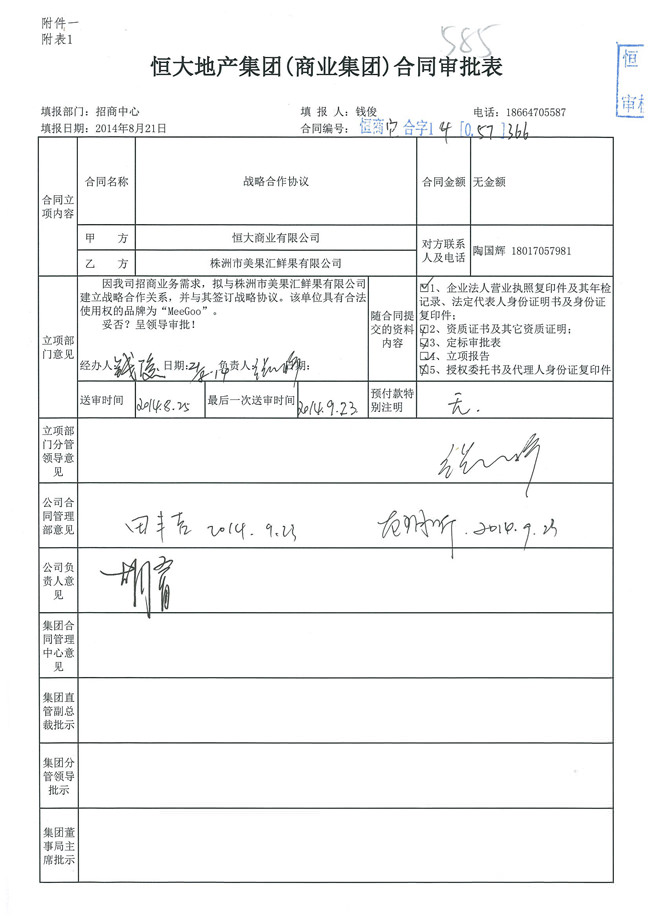 附件一
附表1
585
恒
审核
恒大地产集团(商业集团)合同审批表
填报部门：招商中心 填 报 人：钱俊 电话：18664705587
填报日期：2014年8月21日 合同编号：恒商 合字14[0.57]366
合同立项内容 合同名称 战略合作协议 合同金额 无金额
甲 方 恒大商业有限公司 对方联系人及电话 陶国辉 18017057981
乙 方 株洲市美果汇鲜果有限公司
立项部门意见
因我司招商业务需求，拟与株洲市美果汇鲜果有限公司
建立战略合作关系，并与其签订战略协议。该单位具有合法
使用权的品牌为“MeeGoo”。
妥否？呈领导审批！
经办人： 日期： 负责人： 日期：
随合同提交的资料内容
☑1、企业法人营业执照复印件及其年检
记录、法定代表人身份证明书及身份证
复印件；
☑2、资质证书及其它资质证明；
☑3、定标审批表
☑4、立项报告
☑5、授权委托书及代理人身份证复印件
送审时间 2014.8.25 最后一次送审时间 2014.9.23 预付款特别注明 无.
立项部门分管领导意见
公司合同管理部意见 田丰吉 2014.9.23 2014.9.23
公司负责人意见
集团合同管理中心意见
集团直管副总裁批示
集团分管领导批示
集团董事局主席批示